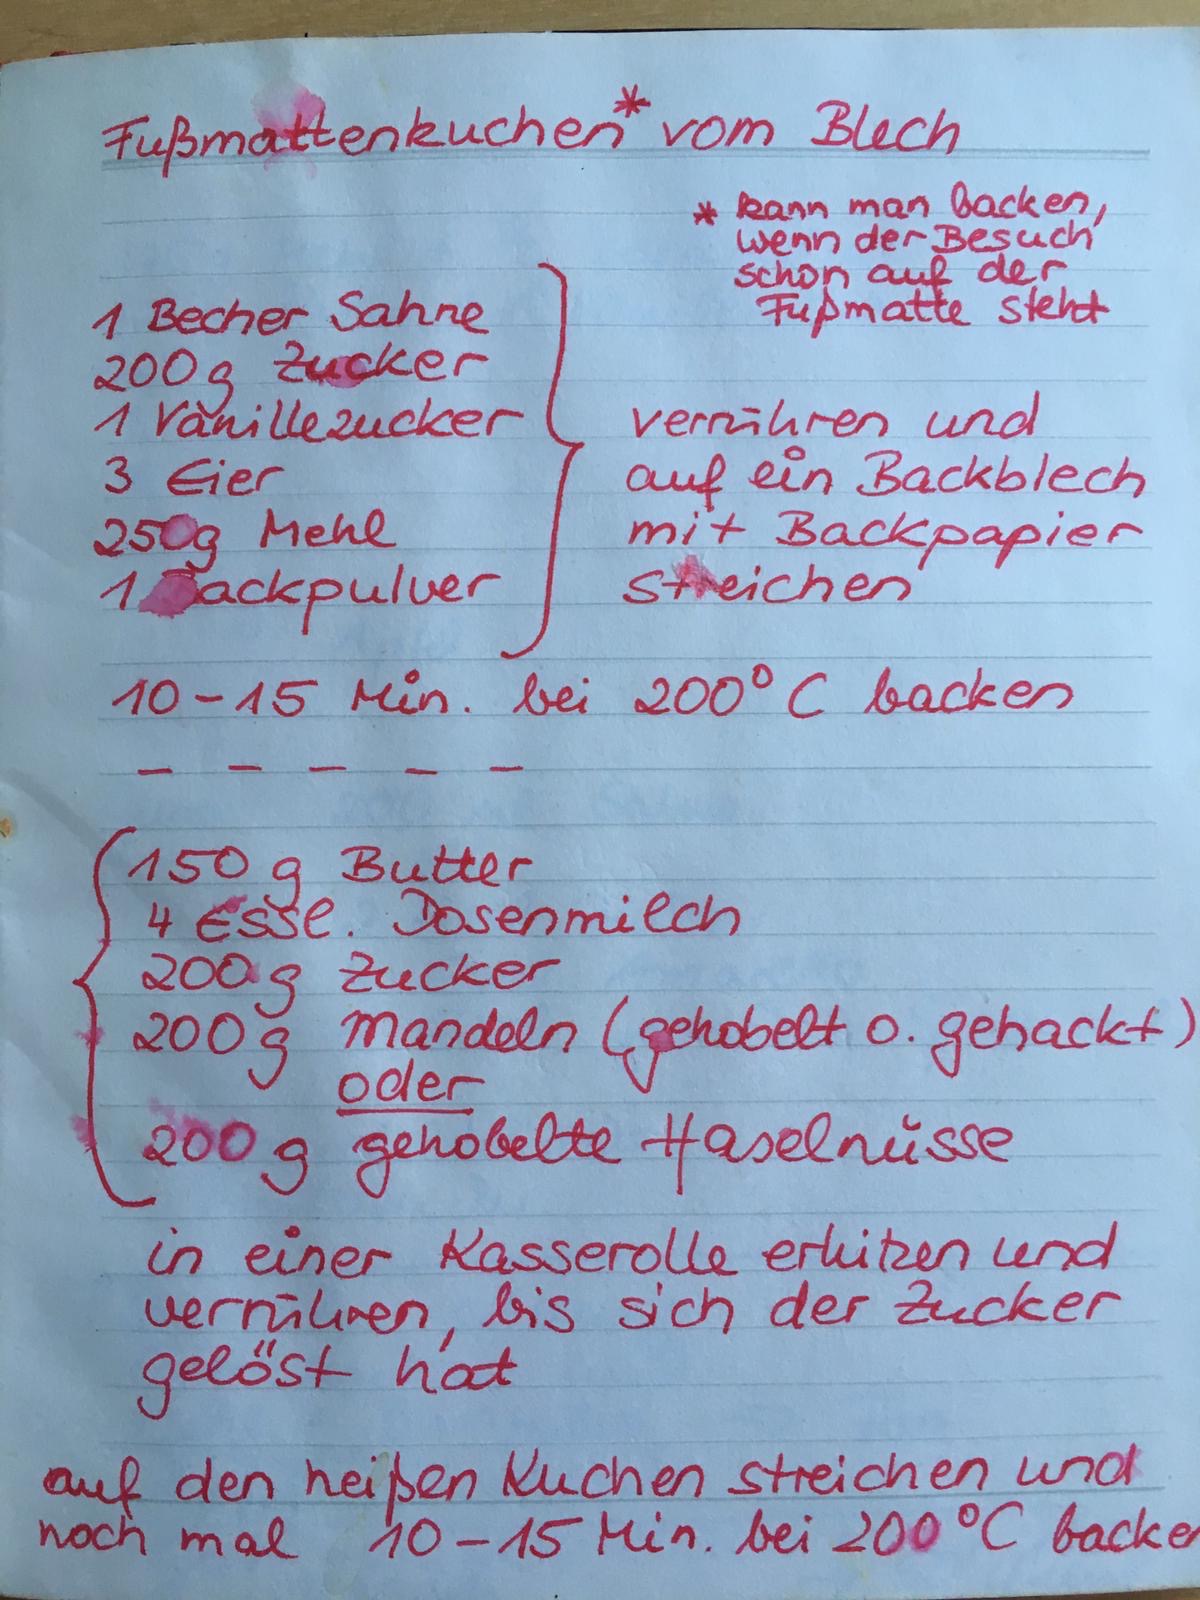 Fußmattenkuchen* vom Blech
* kann man backen,
wenn der Besuch
schon auf der
Fußmatte steht
1 Becher Sahne
200 g Zucker
1 Vanillezucker
3 Eier
250g Mehl
1 Backpulver
verrühren und
auf ein Backblech
mit Backpapier
streichen
10-15 Min. bei 200°C backen
- - - - -
150 g Butter
4 Essl. Dosenmilch
200 g Zucker
200 g Mandeln (gehobelt o. gehackt)
oder
200 g gehobelte Haselnüsse
in einer Kasserolle erhitzen und
verrühren, bis sich der Zucker
gelöst hat
auf den heißen Kuchen streichen und
noch mal 10-15 Min. bei 200°C backen